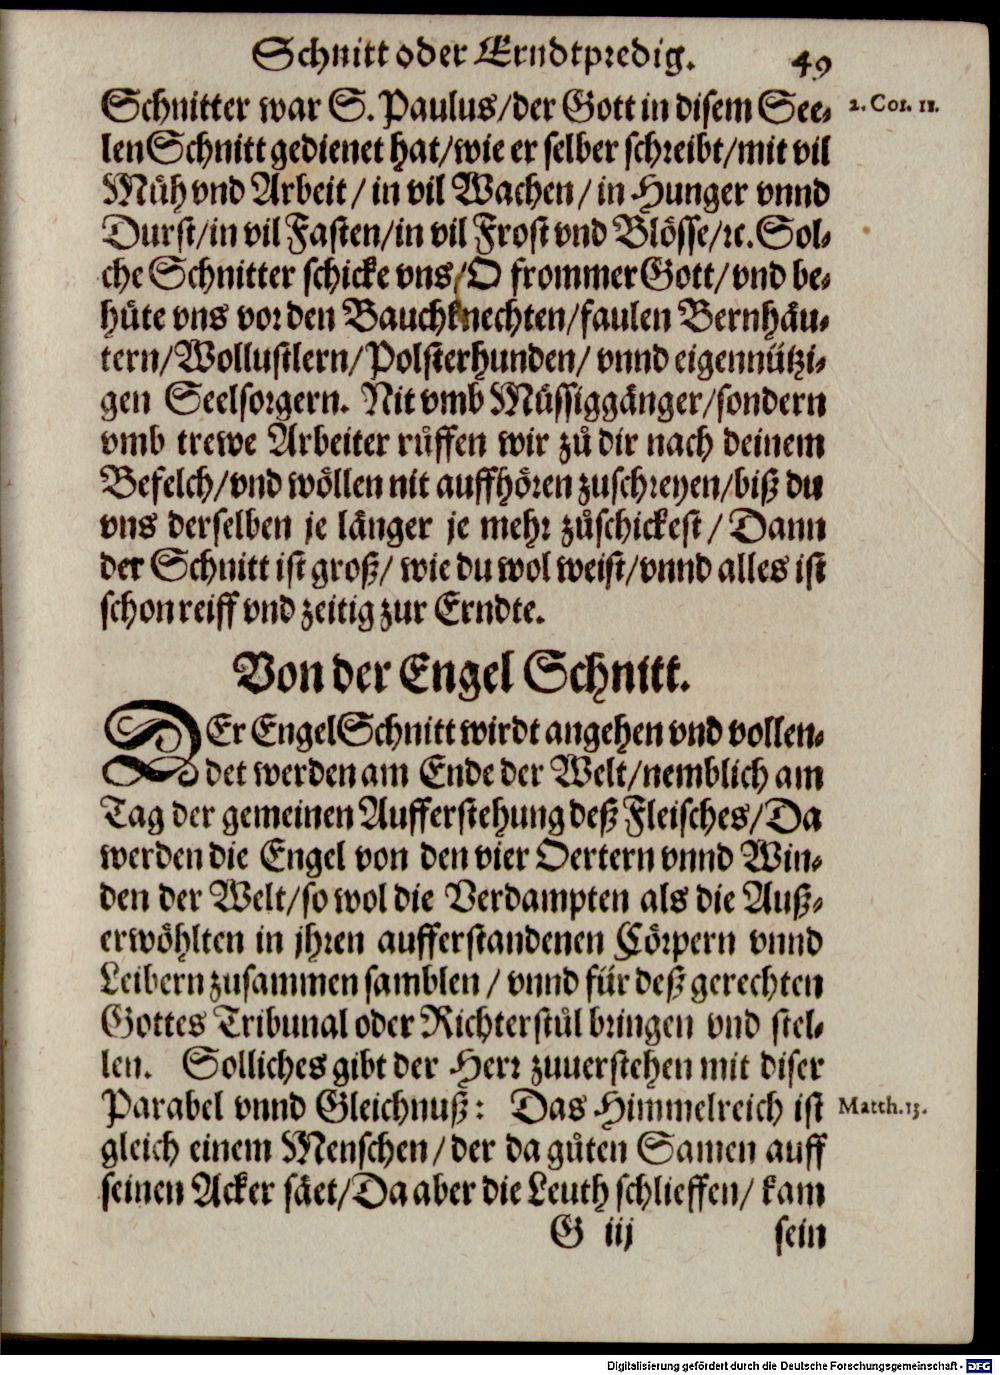 Schnitt oder Erndtpredig. 49
Schnitter war S. Paulus/der Gott in disem See-
len Schnitt gedienet hat/wie er selber schreibt/mit vil
Müh vnd Arbeit/ in vil Wachen/ in Hunger vnnd
Durst/in vil Fasten/in vil Frost vnd Blösse/ꝛc. Sol-
che Schnitter schicke vns/O frommer Gott/vnd be-
hüte vns vor den Bauchknechten/faulen Bernhäu-
tern/Wollustlern/Polsterhunden/ vnnd eigennützi-
gen Seelsorgern. Nit vmb Müssiggänger/sondern
vmb trewe Arbeiter rüffen wir zů dir nach deinem
Befelch/vnd wöllen nit auffhören zuschreyen/biß du
vns derselben je länger je mehr zůschickest/ Dann
der Schnitt ist groß/ wie du wol weist/vnnd alles ist
schon reiff vnd zeitig zur Erndte.
2. Cor. 11.
Von der Engel Schnitt.
DEr Engel Schnitt wirdt angehen vnd vollen-
det werden am Ende der Welt/nemblich am
Tag der gemeinen Aufferstehung deß Fleisches/Da
werden die Engel von den vier Oertern vnnd Win-
den der Welt/so wol die Verdampten als die Auß-
erwöhlten in jhren aufferstandenen Cörpern vnnd
Leibern zusammen samblen / vnnd für deß gerechten
Gottes Tribunal oder Richterstůl bringen vnd stel-
len. Solliches gibt der Herr zuuerstehen mit diser
Parabel vnnd Gleichnuß: Das Himmelreich ist
gleich einem Menschen/ der da gůten Samen auff
seinen Acker säet/Da aber die Leuth schlieffen/ kam
Matth. 13.
G iij sein
Digitalisierung gefördert durch die Deutsche Forschungsgemeinschaft - DFG